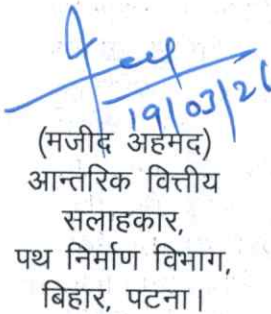 19/03/26
(मजीद अहमद)
आन्तरिक वित्तीय
सलाहकार,
पथ निर्माण विभाग,
बिहार, पटना।